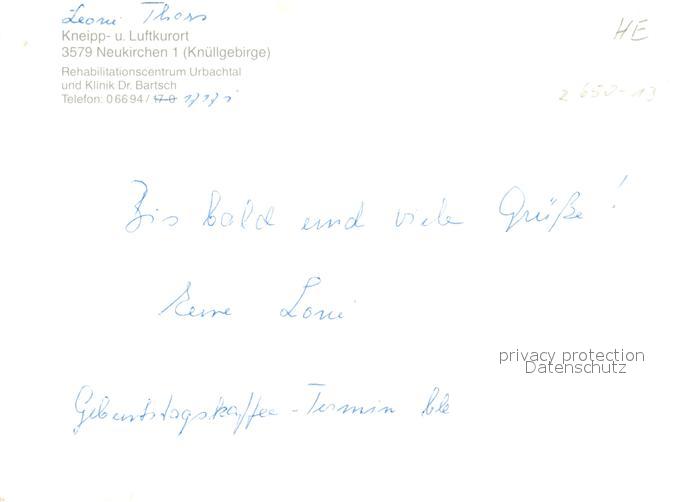 Leoni Thoss
HE
Kneipp- u. Luftkurort
3579 Neukirchen 1 (Knüllgebirge)
Rehabilitationscentrum Urbachtal
und Klinik Dr. Bartsch
Telefon: 0 66 94 /
2 650-13
Bis bald und viele Grüße!
Loni
privacy protection
Datenschutz
Geburtstagskaffee-Termin